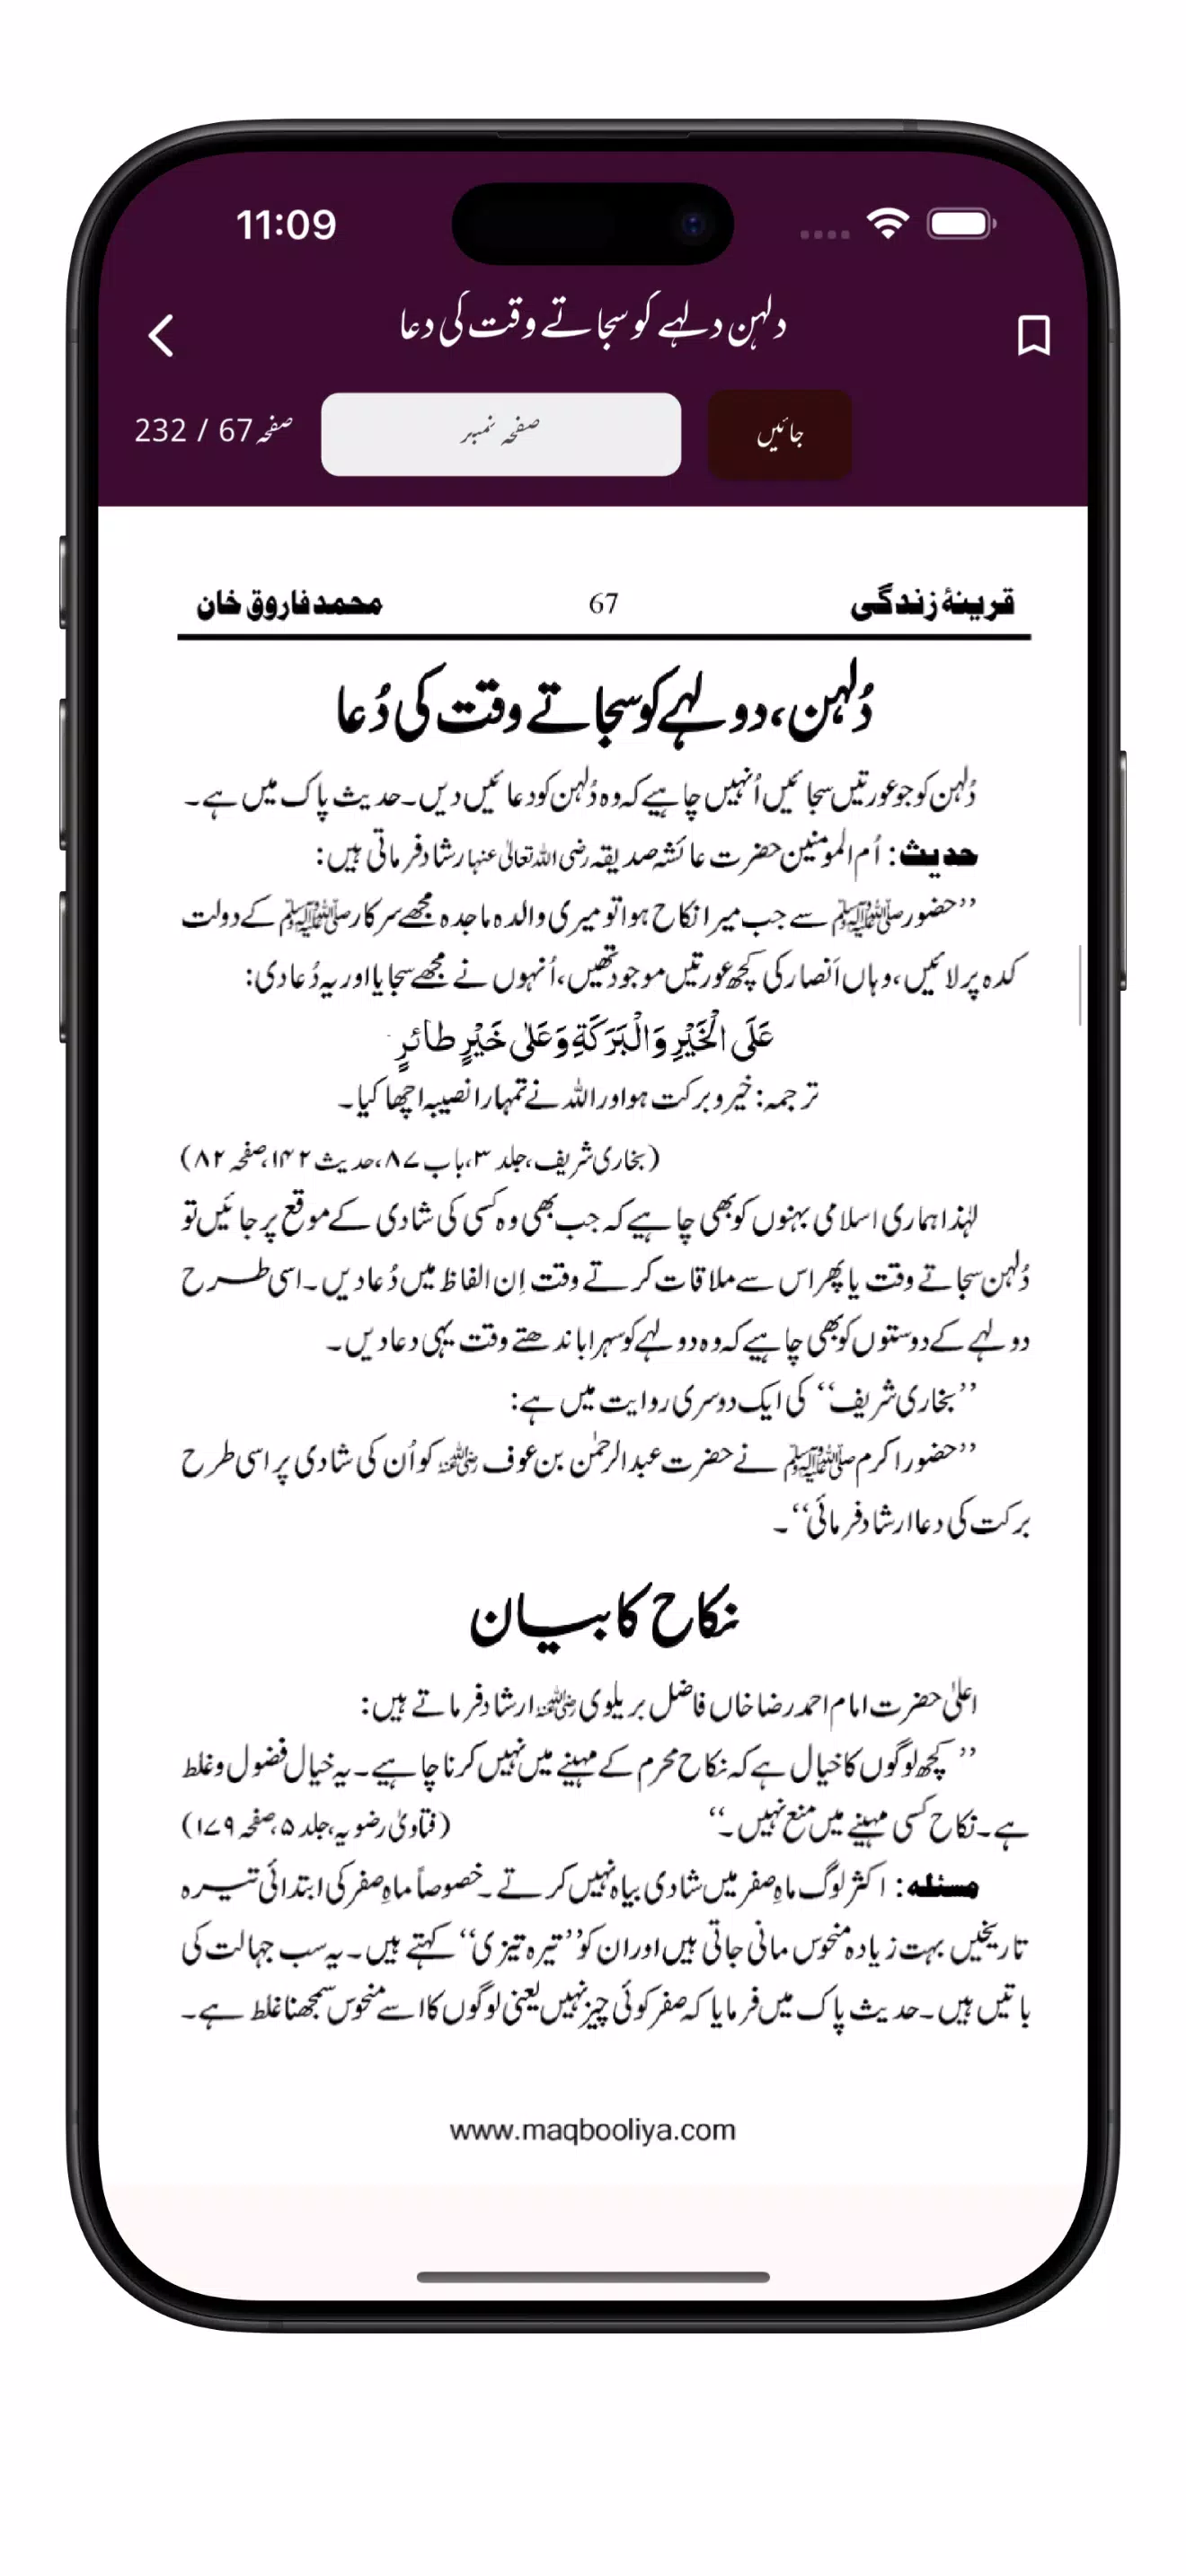 11:09
دلہن دلہے کو سجاتے وقت کی دعا
صفحہ 67 / 232
صفحہ نمبر
جائیں
قرینۂ زندگی 67 محمد فاروق خان
دُلہن، دولہے کو سجاتے وقت کی دُعا
دُلہن کو جو عورتیں سجائیں اُنہیں چاہیے کہ وہ دُلہن کو دعائیں دیں۔ حدیث پاک میں ہے۔
حدیث: اُم المومنین حضرت عائشہ صدیقہ رضی اللہ تعالیٰ عنہا ارشاد فرماتی ہیں:
’’حضور صلی اللہ علیہ وسلم ﷺ سے جب میرا نکاح ہوا تو میری والدہ ماجدہ مجھے سرکار صلی اللہ علیہ وسلم ﷺ کے دولت
کدہ پر لائیں، وہاں اَنصار کی کچھ عورتیں موجود تھیں، اُنہوں نے مجھے سجایا اور یہ دُعا دی:
عَلَى الْخَيْرِ وَالْبَرَكَةِ وَعَلٰى خَيْرٍ طائرٍ
ترجمہ: خیر و برکت ہو اور اللہ نے تمہارا نصیبہ اچھا کیا۔
(بخاری شریف، جلد ۳، باب ۸۷، حدیث ۱۴۲، صفحہ ۸۲)
لہٰذا ہماری اسلامی بہنوں کو بھی چاہیے کہ جب بھی وہ کسی کی شادی کے موقع پر جائیں تو
دُلہن سجاتے وقت یا پھر اس سے ملاقات کرتے وقت اِن الفاظ میں دُعا دیں۔ اسی طرح
دولہے کے دوستوں کو بھی چاہیے کہ وہ دولہے کو سہرا باندھتے وقت یہی دعا دیں۔
’’بخاری شریف‘‘ کی ایک دوسری روایت میں ہے:
’’حضور اکرم صلی اللہ علیہ وسلم ﷺ نے حضرت عبدالرحمٰن بن عوف رضی اللہ عنہ کو اُن کی شادی پر اسی طرح
برکت کی دعا ارشاد فرمائی‘‘۔
نکاح کا بیان
اعلیٰ حضرت امام احمد رضا خاں فاضل بریلوی رضی اللہ عنہ ارشاد فرماتے ہیں:
’’ کچھ لوگوں کا خیال ہے کہ نکاح محرم کے مہینے میں نہیں کرنا چاہیے۔ یہ خیال فضول و غلط
ہے۔ نکاح کسی مہینے میں منع نہیں۔‘‘ (فتاویٰ رضویہ، جلد ۵، صفحہ ۱۷۹)
مسئلہ: اکثر لوگ ماہِ صفر میں شادی بیاہ نہیں کرتے۔ خصوصاً ماہِ صفر کی ابتدائی تیرہ
تاریخیں بہت زیادہ منحوس مانی جاتی ہیں اور ان کو ’’تیرہ تیزی‘‘ کہتے ہیں۔ یہ سب جہالت کی
باتیں ہیں۔ حدیث پاک میں فرمایا کہ صفر کوئی چیز نہیں یعنی لوگوں کا اسے منحوس سمجھنا غلط ہے۔
www.maqbooliya.com